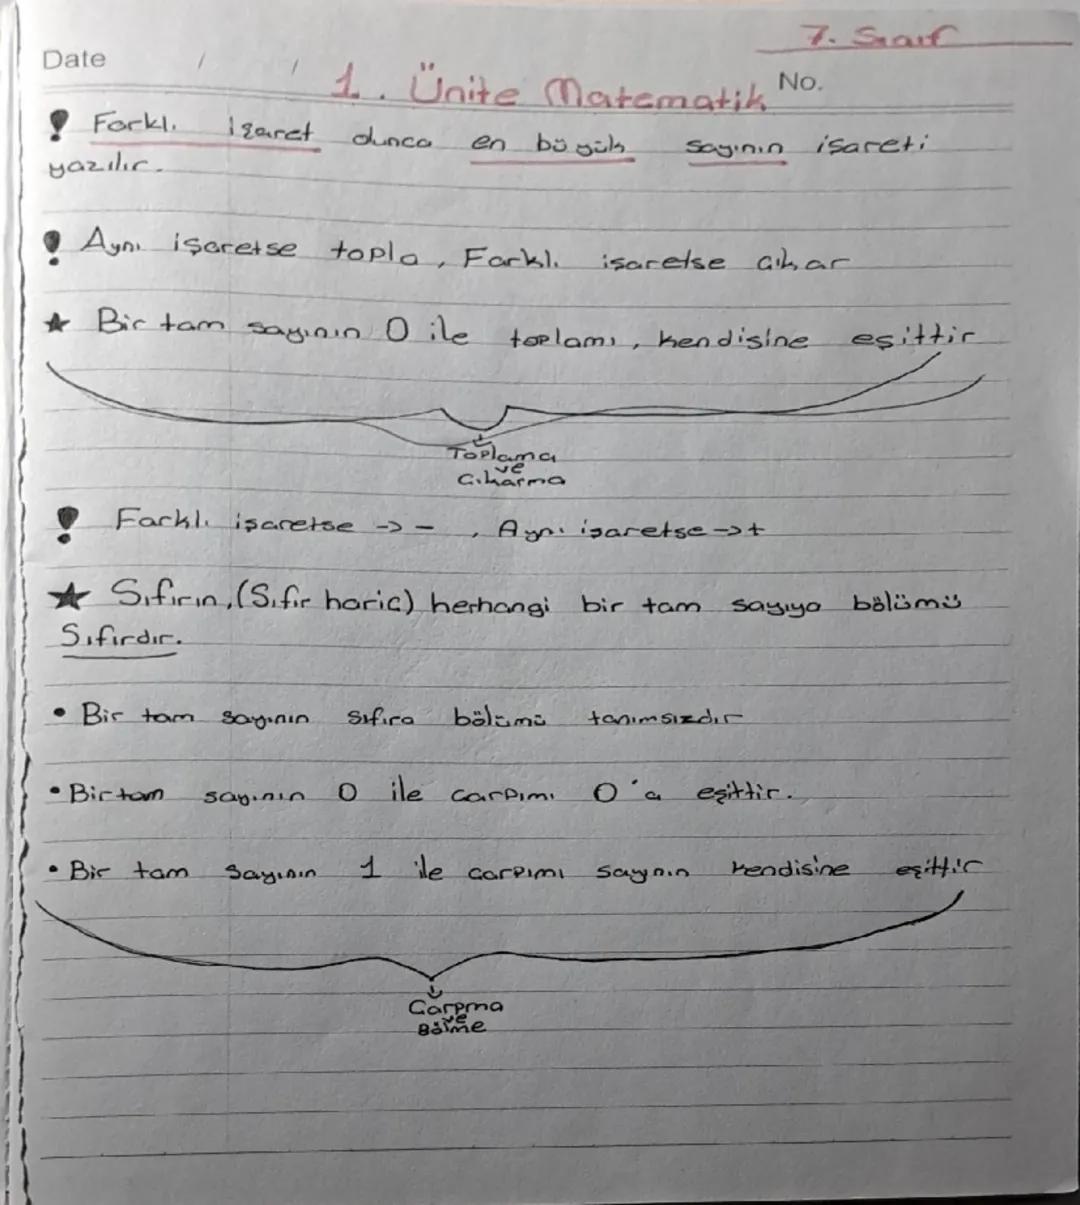 7. Sınıf
Date / /
1. Ünite Matematik No.
! Farklı işaret olunca en büyük sayının işareti
yazılır.
! Aynı işaretse topla, Farklı işaretse çıkar
★ Bir tam sayının 0 ile toplamı, kendisine eşittir
Toplama
ve
Çıkarma
! Farklı işaretse -> - , Aynı işaretse -> +
★ Sıfırın, (Sıfır hariç) herhangi bir tam sayıya bölümü
Sıfırdır.
• Bir tam sayının sıfıra bölümü tanımsızdır
• Bir tam sayının 0 ile çarpımı 0'a eşittir.
• Bir tam sayının 1 ile çarpımı saynın kendisine eşittir
Çarpma
ve
Bölme